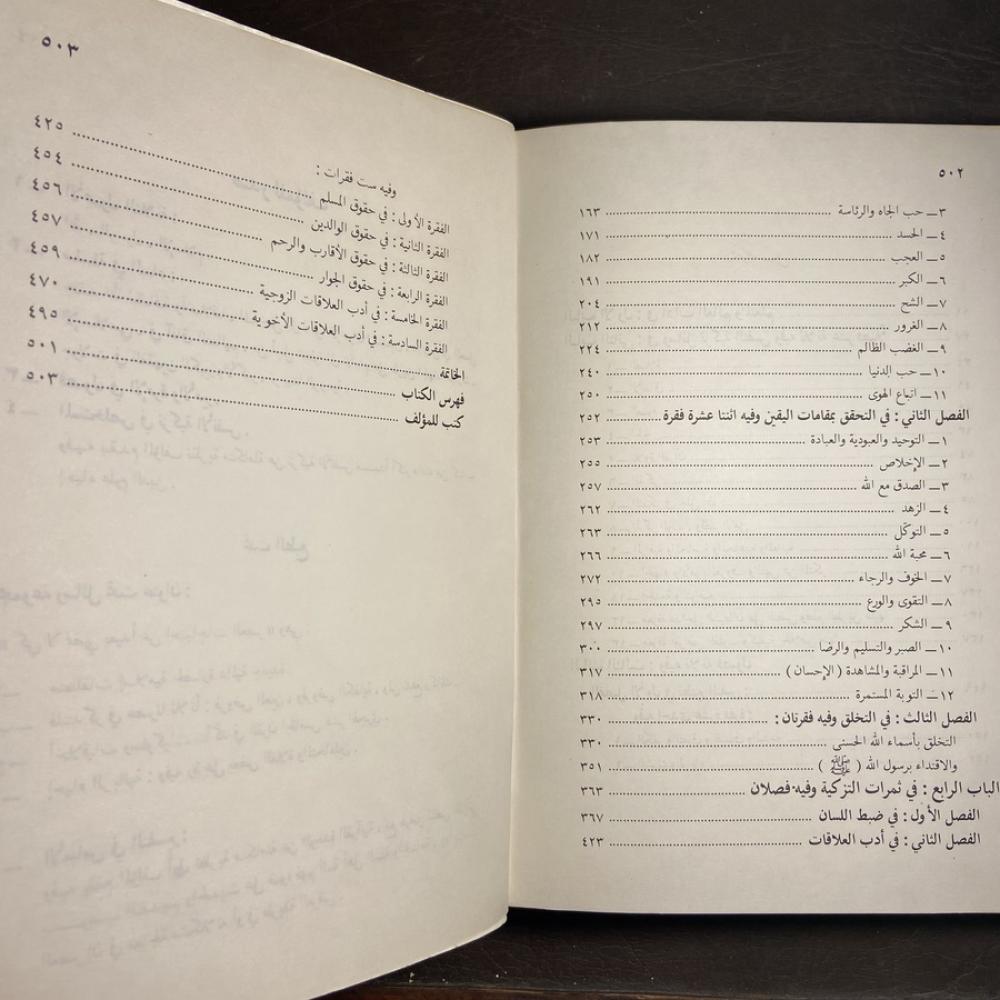 ٥٠٢
٣ـ حب الجاه والرئاسة ........ ١٦٣
٤ـ الحسد ........ ١٧١
٥ـ العجب ........ ١٨٢
٦ـ الكبر ........ ١٩١
٧ـ الشح ........ ٢٠٤
٨ـ الغرور ........ ٢١٢
٩ـ الغضب الظالم ........ ٢٢٤
١٠ـ حب الدنيا ........ ٢٤٠
١١ـ اتباع الهوى ........ ٢٥٠
الفصل الثاني : في التحقق بمقامات اليقين وفيه اثنتا عشرة فقرة ........ ٢٥٢
١ـ التوحيد والعبودية والعبادة ........ ٢٥٣
٢ـ الإخلاص ........ ٢٥٥
٣ـ الصدق مع الله ........ ٢٥٧
٤ـ الزهد ........ ٢٦٢
٥ـ التوكّل ........ ٢٦٣
٦ـ محبة الله ........ ٢٦٦
٧ـ الخوف والرجاء ........ ٢٧٢
٨ـ التقوى والورع ........ ٢٩٥
٩ـ الشكر ........ ٢٩٧
١٠ـ الصبر والتسليم والرضا ........ ٣٠٠
١١ـ المراقبة والمشاهدة ( الإحسان ) ........ ٣١٧
١٢ـ التوبة المستمرة ........ ٣١٨
الفصل الثالث : في التخلق وفيه فقرتان : ........ ٣٣٠
التخلق بأسماء الله الحسنى ........ ٣٣٠
والاقتداء برسول الله ( ﷺ ) ........ ٣٥١
الباب الرابع : في ثمرات التزكية وفيه فصلان ........ ٣٦٣
الفصل الأول : في ضبط اللسان ........ ٣٦٧
الفصل الثاني : في أدب العلاقات ........ ٤٢٣
٥٠٣
وفيه ست فقرات :
الفقرة الأولى : في حقوق المسلم ........ ٤٢٥
الفقرة الثانية : في حقوق الوالدين ........ ٤٥٤
الفقرة الثالثة : في حقوق الأقارب والرحم ........ ٤٥٦
الفقرة الرابعة : في حقوق الجوار ........ ٤٥٧
الفقرة الخامسة : في أدب العلاقات الزوجية ........ ٤٥٩
الفقرة السادسة : في أدب العلاقات الأخوية ........ ٤٧٠
الخاتمة ........ ٤٩٥
فهرس الكتاب ........ ٥٠١
كتب للمؤلف ........ ٥٠٣